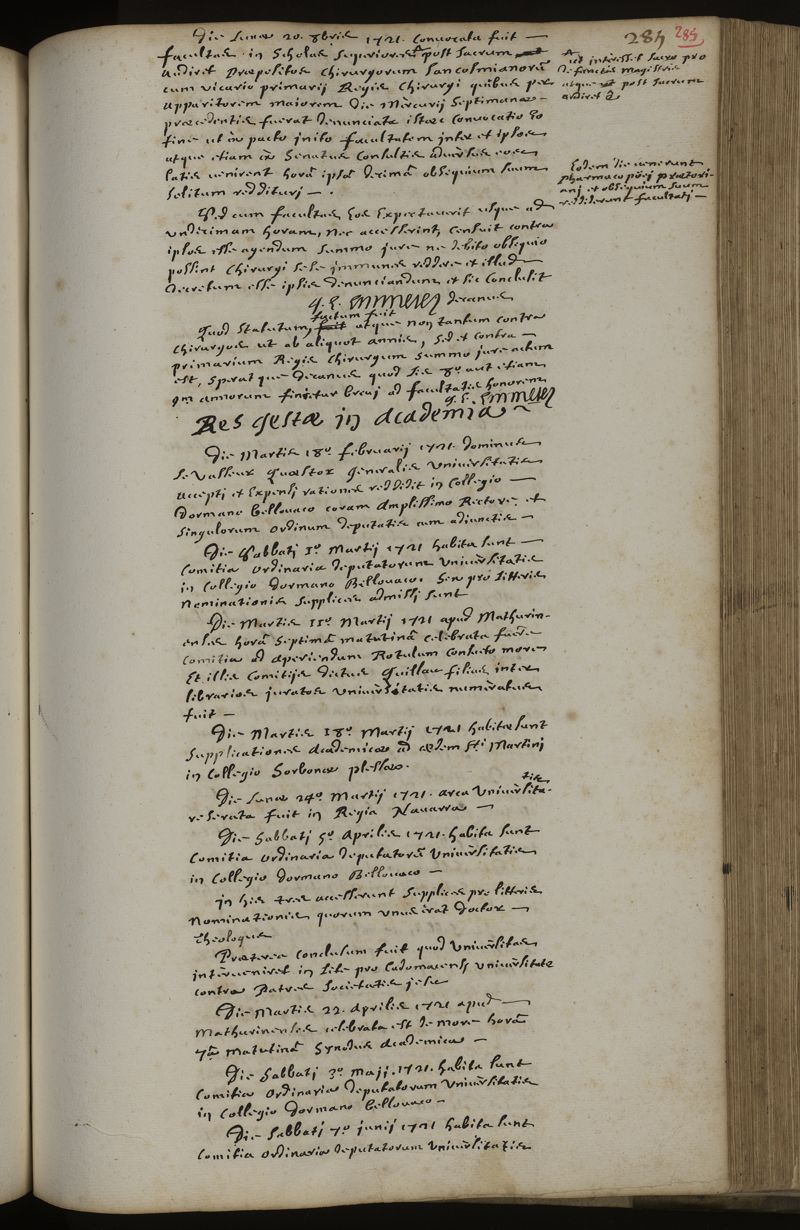 284 285
Die Lunæ 20. 8bris 1721. Convocata fuit —
facultas in Scholas Superiores post Sacrum
audiret Præpositos Chirurgorum Sancosmianorũ
cum vicario primarij Regis Chirurgi quibus per
apparitorem maiorem Die Mercurij Septimanæ —
præcedentis fuerat denunciata istæc Convocatio Eo
fine ut in pacto inito facultatem inter et ipsos
atque etiam in Senatus Consultis adversus eos
latis venirent horâ ipsâ decimâ obsequium suum
solitum reddituri — .
Sed cum facultas Eos Expectaverit usque ad
undecimam horam, nec accesserint, Censuit contra
ipsos esse agendum summo jure ne debito obsequio
possint Chirurgi sese immunes reddere et illud
Decretum esse ipsis denunciandum et sic Conclusit
decanus
A ut interesset sacro pro
defunctis magistris
atque post sacrum
audiret &
Eodem die venerunt
pharmacopœi prætori-
ani et obsequium suum
reddiderunt facultati —
factum fuit
Quod Statutum, fuit atque non tantum contra
Chirurgos ut ab aliquot annis, sed et contra —
primarium Regis Chirurgum summo jure actum
est, speratque decanus quod lis 80. aut etiam
annorum finietur brevi ad facultatis honorem
Res gestæ in Academia
Die Martis 18º. februarij 1721. dominus
le Vasseur Quæstor Generalis Universitatis
accepti et Expensi rationes reddidit in Collegio —
Dormano Bellovaco coram Amplissimo Rectore et
singulorum ordinum deputatis cum adjunctis —
Die Sabbati 1º. Martij 1721 habita sunt —
Comitia ordinaria deputatorum Universitatis
in Collegio Dormano Bellovaco. Sex pro litteris
Nominationis Supplices admissi sunt
Die Martis 11º Martij 1721 apud Mathurin-
enses horâ septimâ matutinâ celebrata fuere
Comitia ad aperiendum Rotulum consueto more
Et illis Comitijs dictus Guillau filius inter
librarios juratos Universitatis numeratus
fuit —
Die Martis 18º. Martij 1721 habitæ sunt
Supplicationes Academicæ ad ædem Sti Martini
in Collegio Sorbonæ plessæo.
Die Lunæ 24º. Martij 1721. arca Universita-
tis
reserata fuit in Regia Navarra —
Die Sabbati 5º. Aprilis 1721. habita sunt
Comitia ordinaria deputatorũ Universitatis
in Collegio Dormano Bellovaco —
in his tres accesserunt supplices pro litteris
Nominationis quorum unus erat doctor —
theologus
Præterea conclusum fuit quod Universitas
interveniret in lite pro Cadomacensi Universitate
contra Patres Societatis jesu
Die Martis 22. Aprilis 1721 apud —
Mathurinenses celebrata est de more horâ
7â matutinâ Synodus Academica —
Die Sabbati 3º. Maji. 1721. habita sunt
Comitia ordinaria deputatorum Universitatis
in Collegio Dormano Bellovaco —
Die Sabbati 7º. junij 1721 habita sunt
Comitia ordinaria deputatorum Universitatis